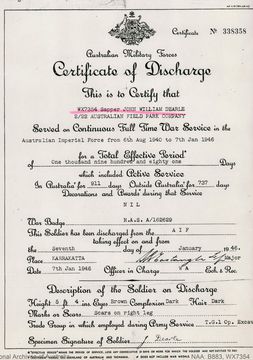 Certificate No 338358
Australian Military Forces
Certificate of Discharge
This is to Certify that
WX7354 Sapper JOHN WILLIAM DEARLE
2/22 AUSTRALIAN FIELD PARK COMPANY
Served on Continuous Full Time War Service in the
Australian Imperial Force from 6th Aug 1940 to 7th Jan 1946
for a Total Effective Period of
One thousand nine hundred and eighty one Days
which included Active Service
In Australia for 911 days Outside Australia for 737 days
Decorations and Awards during that Service
NIL
War Badge R.A.S. A/162629
This Soldier has been discharged from the A I F
taking effect on and from
the Seventh day of January 1946.
Place KARRAKATTA Major
Date 7th Jan 1946 Officer in Charge WA Ech & Rec.
Description of the Soldier on Discharge
Height 5 ft 4 ins Eyes Brown Complexion Dark Hair Dark
Marks or Scars Scars on right leg
Trade Group in which employed during Army Service T.G.1 Op. Excav
Specimen Signature of Soldier J. Dearle
NAA: B883, WX7354